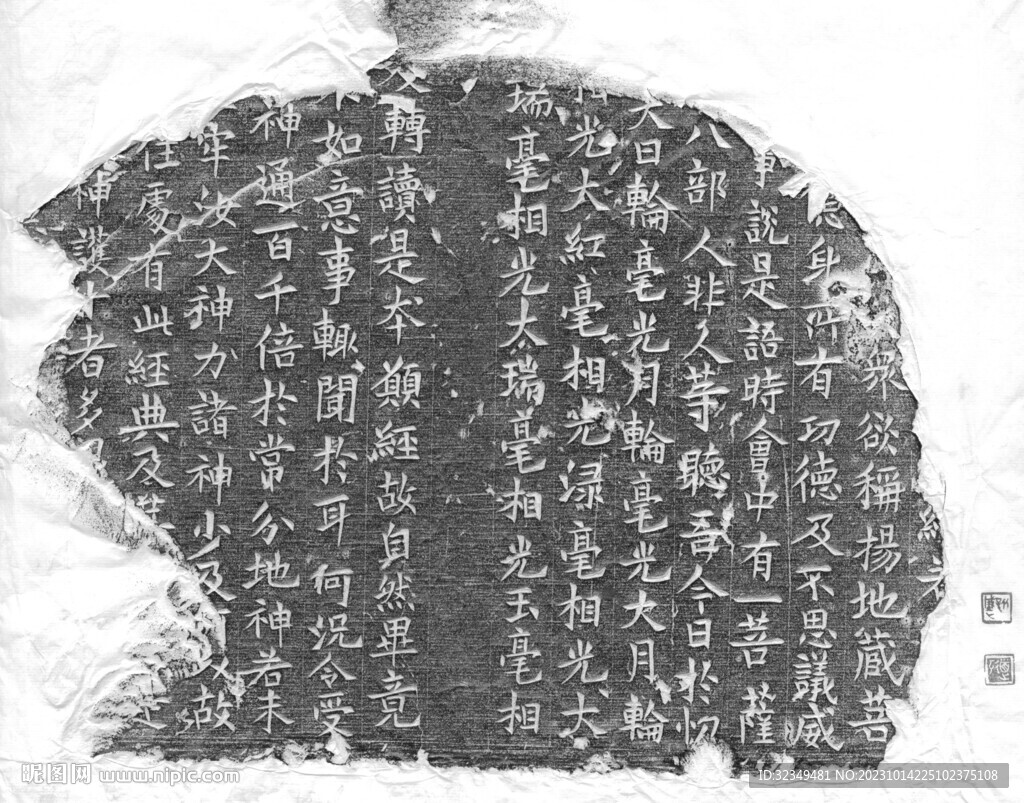 眾欲稱揚地藏菩
身所有功德及不思議威
事說是語時會中有一菩薩
八部人非人等聽吾今日於忉
大日輪毫光月輪毫光大月輪
光大紅毫相光渌毫相光大
瑞毫相光大瑞毫相光玉毫相
及轉讀是本願經故自然畢竟
如意事輙聞於耳何況令受
神通一百千倍於常分地神若未
牢汝大神力諸神少及 故
住處有此經典及
神護 者多
昵图网 www.nipic.com
ID:32349481 NO:20231014225102375108